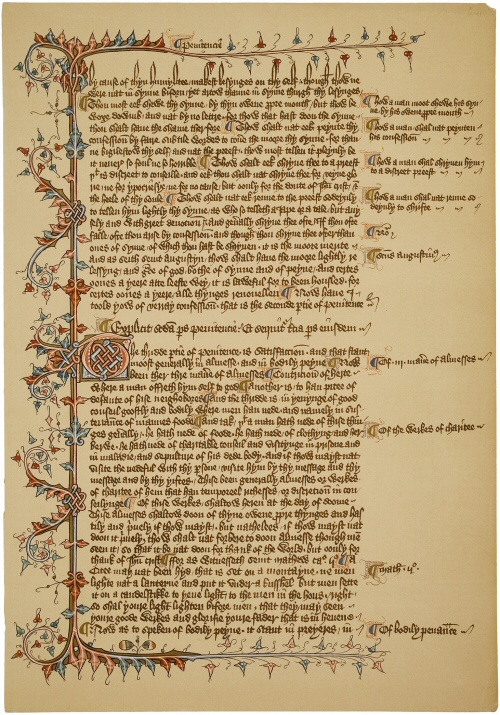 ¶ Penitencie
by cause of thyn humylitee / makest lesynges on thy self / though thow ne
were nat in synne biforn / yet artow thanne in synne thurgh thy lesynges
¶ Thou most eek shewe thy synne by thyn owene ppre mouth / but thow be
woxe dowmb / and nat by no lettre / for thow that hast doon the synne
thou shalt haue the shame therfore ¶ Thow shalt nat eek peynte thy
confession by faire subtile wordes to couere the moore thy synne / for than
ne bigilestow thy self / and nat the preest / thow most tellen it pleynly be
it neuer so foul ne so horrible ¶ Thow shalt eek shryue thee to a preest
þt is discreet to conseille / and eek thou shalt nat shryue thee for veyne glo
rie ne for ypocrisye / ne for no cause / but oonly for the doute of ihu crist / &
the heele of thy soule ¶ Thow shalt nat eek renne to the preest sodeynly
to tellen hym lightly thy synne / as who so telleth a Iape or a tale / but auy
sely and with greet deuocion / and generally shryue thee ofte / if thou ofte
falle ofte thou arise by confession / and though thou shryue thee ofter than
ones of synne of which thou hast be shryuen / it is the moore merite
and as seith seint Augustyn / thow shalt haue the moore lightly re
lessyng / and gce of god bothe of synne and of peyne / and certes
oones a yeere atte leeste wey / it is laweful for to been housled / for
certes oones a yeere / alle thynges renouellen ¶ Now haue I
toold yow of verray confession / that is the seconde ptie of penitence
¶ Explicit secda ps penitencie / Et sequitr tcia ps eiusdem
The thridde ptie of Penitence / is Satisfaccion / and that stant
moost generally in almesse / and in bodily peyne ¶ Now
been ther thre manere of almesses ¶ Contricion of herte
Where a man offreth hym self to god ¶ Another is / to han pitee of
defaute of hise neighebores ¶ and the thridde is / in yeuynge of good
conseil goostly and bodily where men han nede / and namely in sus
tenance of mannes foode ¶ and tak / þt a man hath nede of thise thin
ges generally / he hath nede of foode / he hath nede of clothyng / and her
berwe / he hath nede of charitable conseil and visitynge in prisone and
in maladie / and sepulture of his dede body / and if thow mayst nat
visite the nedeful with thy psone / visite hym by thy message and thy
message and by thy yiftes / Thise been generally almesses or werkes
of charitee of hem that han temporeel richesses or discrecion in con
seilynge ¶ Of thise werkes / shaltow heren at the day of doome
Thise almesses shaltow doon of thyne owene ppre thynges and has
tily and priuely if thow mayst / but nathelees / if thow mayst nat
doon it priuely / thow shalt nat forbere to doon almesse though men
seen it / so that it be nat doon for thank of the world / but oonly for
thank of ihu crist ¶ ffor as witnesseth seint Mathew ca. vo. ¶ A
Citee may nat been hyd that is set on a montayne / ne men
lighte nat a lanterne and put it vnder a busshel / but men sette
it on a candelstikke to yeue light to the men in the hous / right
so shal youre light lighten bifore men / that they may seen
youre goode werkes and glorifie youre fader that is in heuene
¶ Now as to speken of bodily peyne / it stant in preyeres / in
¶ How a man moot shewe his syn
ne by his owene ppre mouth
¶ How a man shal nat peynten
his confession
¶ How a man shal shryuen hym
to a discreet preest
¶ How a man shal nat renne so
deynly to shrifte
¶ Of .iij. mane of almesses
¶ Of the werkes of charitee
¶ Math. vo.
¶ Of bodily penance